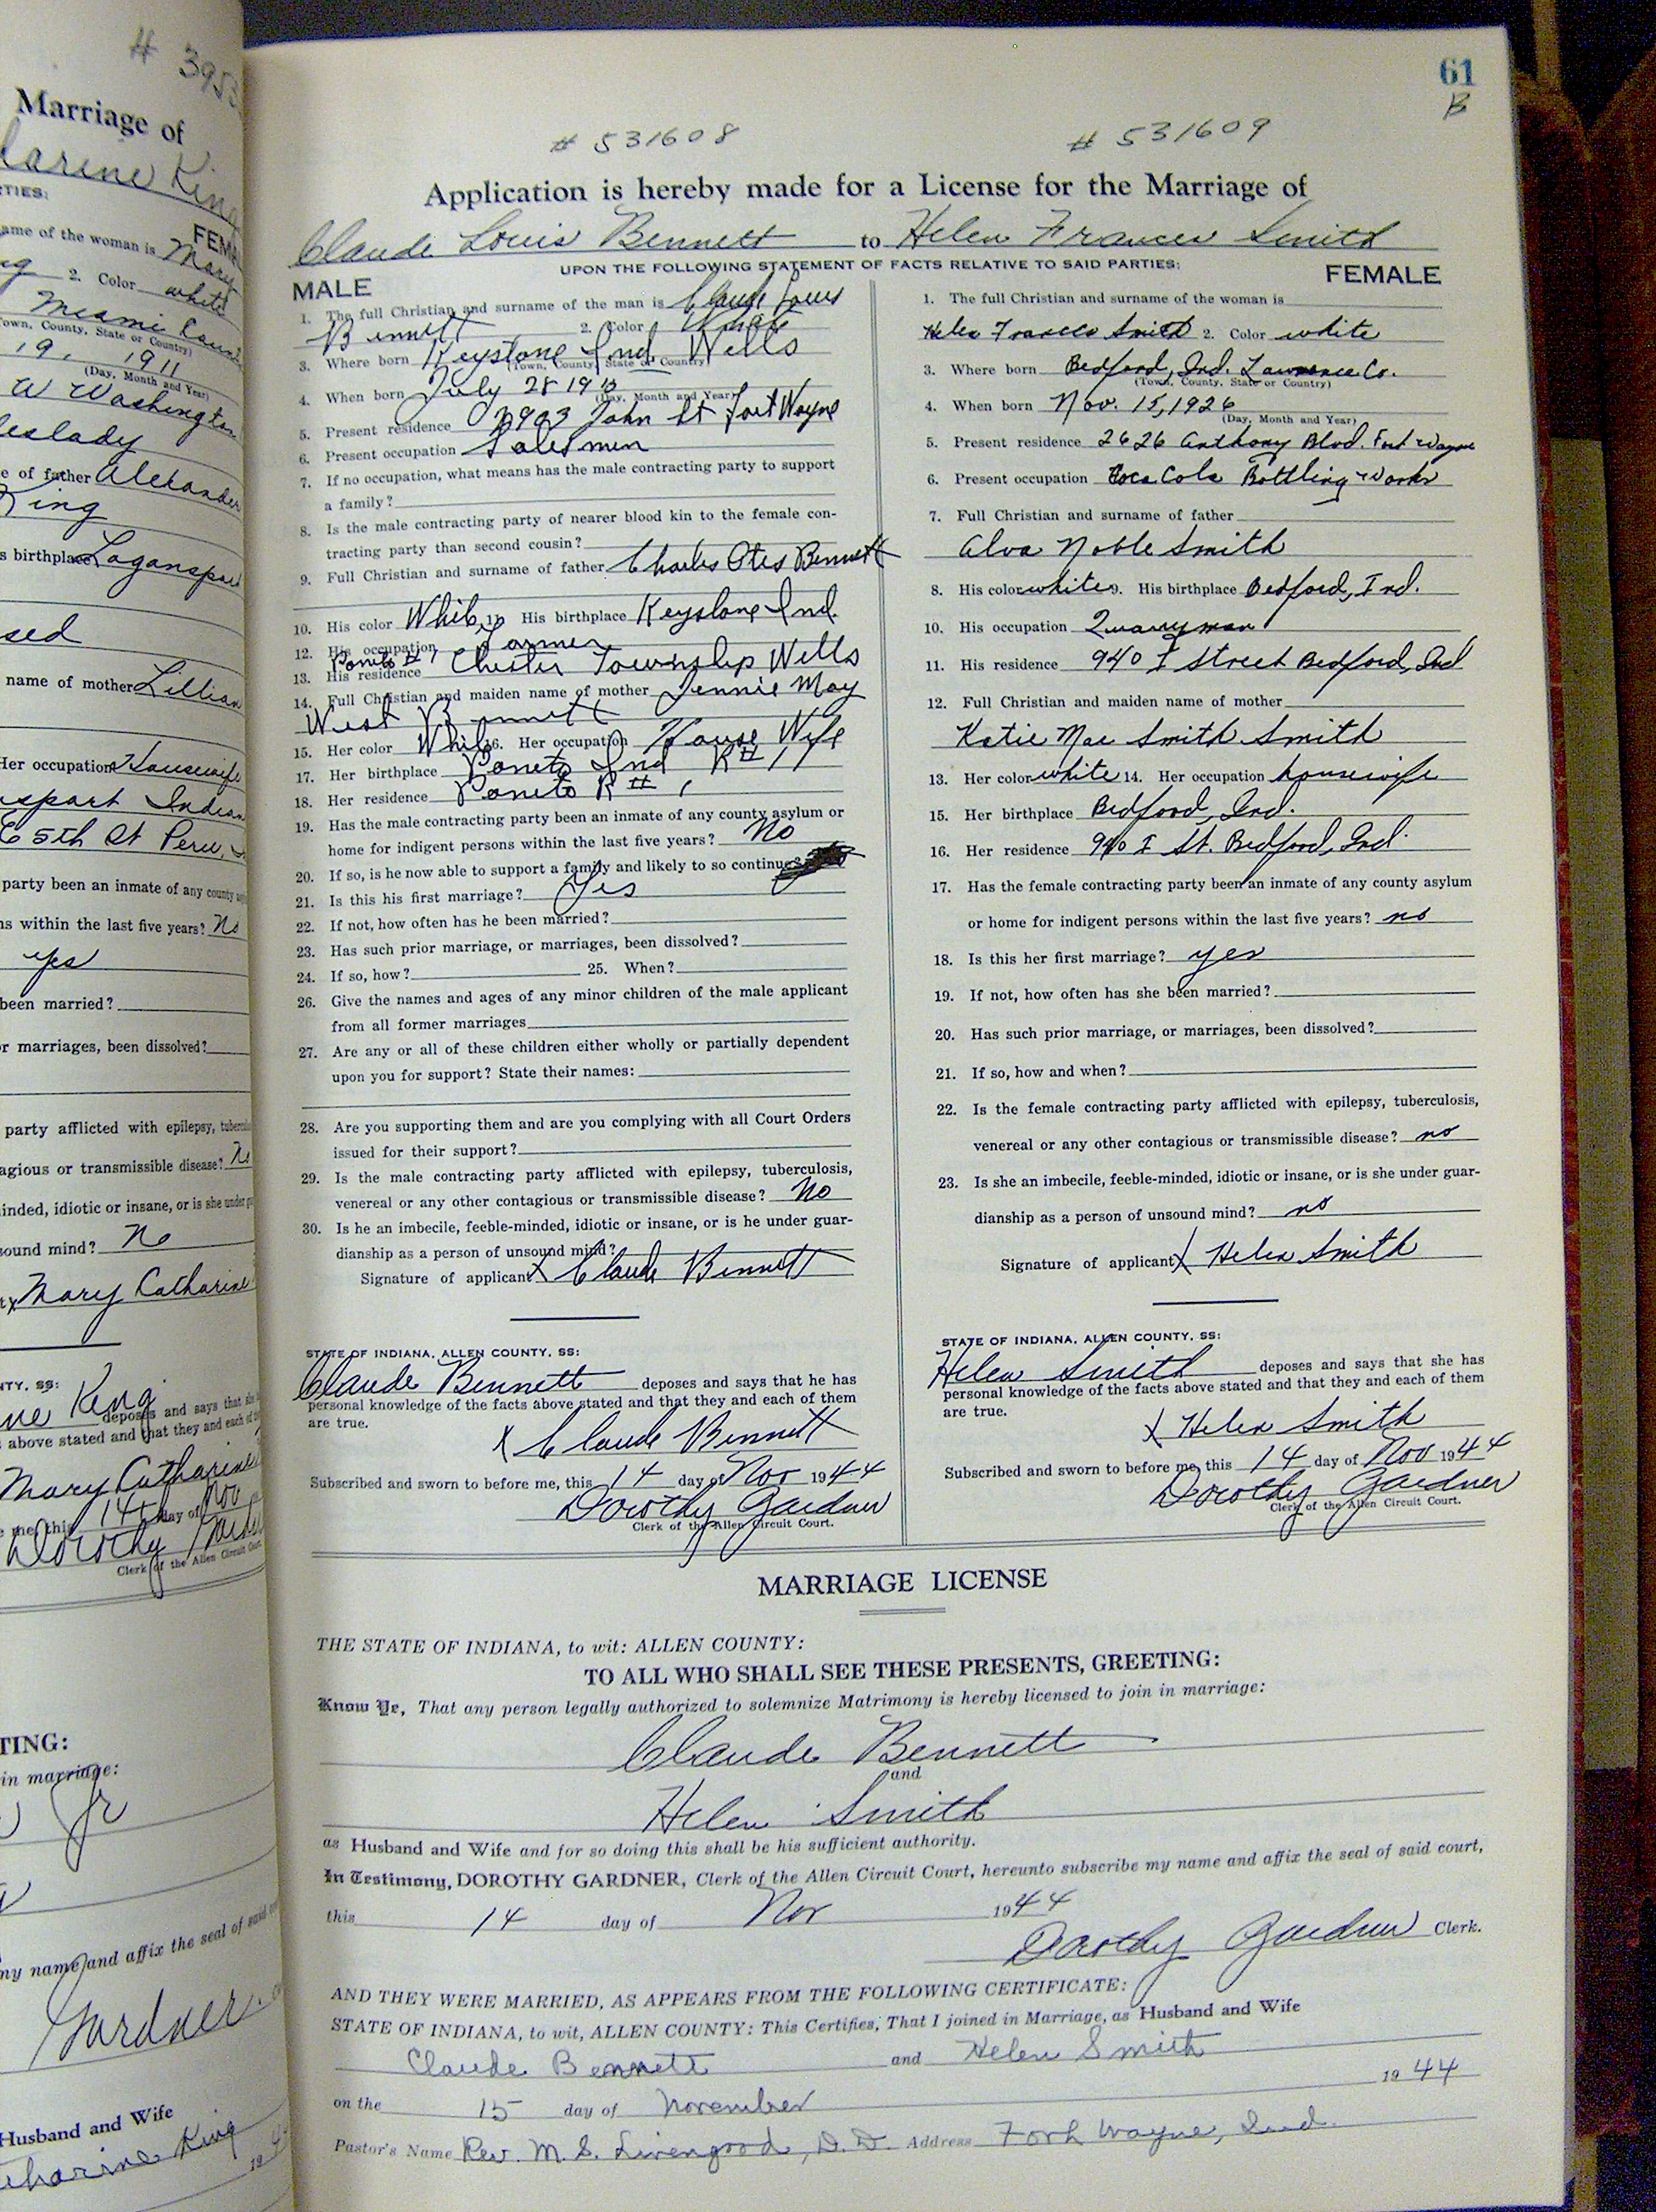 # 395
Marriage of
TIES:
FEM
ame of the woman is Mary
2. Color white
Miami
Town, County, State or Country)
19, 1911
(Day, Month and Year)
W Washington
eslady
e of father Alexander
King
s birthplace Loganspo
sed
name of mother Lillian
Her occupation Housewife
spart Indian
5th St Peru,
party been an inmate of any county
ns within the last five years? No
yes
been married?
r marriages, been dissolved?
party afflicted with epilepsy, tubercu
agious or transmissible disease? No
inded, idiotic or insane, or is she under gu
sound mind? No
Mary Catharine
NTY, SS:
ne King
deposes and says that she
above stated and that they and each of th
Mary Catharine
e me, this 14 day of Nov
Dorothy Gardne
Clerk of the Allen Circuit Court.
TING:
in marriage:
Jr
my name and affix the seal of said co
Gardner
Husband and Wife
tharine King
19
61
B
# 531608 # 531609
Application is hereby made for a License for the Marriage of
Claude Louis Bennett to Helen Frances Smith
UPON THE FOLLOWING STATEMENT OF FACTS RELATIVE TO SAID PARTIES:
MALE
1. The full Christian and surname of the man is Claude Louis
Bennett 2. Color White
3. Where born Keystone Ind. Wells
(Town, County, State or Country)
4. When born July 28 19
(Day, Month and Year)
5. Present residence 2903 John St Fort Wayne
6. Present occupation Salesman
7. If no occupation, what means has the male contracting party to support
a family?
8. Is the male contracting party of nearer blood kin to the female con-
tracting party than second cousin?
9. Full Christian and surname of father Charles Otes Bennett
10. His color White 11. His birthplace Keystone Ind.
12. His occupation Farmer
Poneto #1 Chester Township Wells
13. His residence
14. Full Christian and maiden name of mother Jennie May
West Bennett
15. Her color White 16. Her occupation House Wife
17. Her birthplace Poneto Ind R# 1
18. Her residence Poneto R# 1
19. Has the male contracting party been an inmate of any county asylum or
home for indigent persons within the last five years? No
20. If so, is he now able to support a family and likely to so continue?
21. Is this his first marriage? Yes
22. If not, how often has he been married?
23. Has such prior marriage, or marriages, been dissolved?
24. If so, how? 25. When?
26. Give the names and ages of any minor children of the male applicant
from all former marriages
27. Are any or all of these children either wholly or partially dependent
upon you for support? State their names:
28. Are you supporting them and are you complying with all Court Orders
issued for their support?
29. Is the male contracting party afflicted with epilepsy, tuberculosis,
venereal or any other contagious or transmissible disease? No
30. Is he an imbecile, feeble-minded, idiotic or insane, or is he under guar-
dianship as a person of unsound mind?
Signature of applicant X Claude Bennett
STATE OF INDIANA, ALLEN COUNTY, SS:
Claude Bennett deposes and says that he has
personal knowledge of the facts above stated and that they and each of them
are true.
X Claude Bennett
Subscribed and sworn to before me, this 14 day of Nov 1944
Dorothy Gardner
Clerk of the Allen Circuit Court.
FEMALE
1. The full Christian and surname of the woman is
Helen Frances Smith 2. Color white
3. Where born Bedford, Ind. Lawrence Co.
(Town, County, State or Country)
4. When born Nov. 15, 1926
(Day, Month and Year)
5. Present residence 2626 Anthony Blvd. Fort Wayne
6. Present occupation Coca Cola Bottling Works
7. Full Christian and surname of father
Alva Noble Smith
8. His color white 9. His birthplace Bedford, Ind.
10. His occupation Quarryman
11. His residence 940 I Street Bedford, Ind
12. Full Christian and maiden name of mother
Katie Mae Smith Smith
13. Her color white 14. Her occupation housewife
15. Her birthplace Bedford, Ind.
16. Her residence 940 I St. Bedford, Ind.
17. Has the female contracting party been an inmate of any county asylum
or home for indigent persons within the last five years? no
18. Is this her first marriage? yes
19. If not, how often has she been married?
20. Has such prior marriage, or marriages, been dissolved?
21. If so, how and when?
22. Is the female contracting party afflicted with epilepsy, tuberculosis,
venereal or any other contagious or transmissible disease? no
23. Is she an imbecile, feeble-minded, idiotic or insane, or is she under guar-
dianship as a person of unsound mind? no
Signature of applicant X Helen Smith
STATE OF INDIANA, ALLEN COUNTY, SS:
Helen Smith deposes and says that she has
personal knowledge of the facts above stated and that they and each of them
are true.
X Helen Smith
Subscribed and sworn to before me, this 14 day of Nov 1944
Dorothy Gardner
Clerk of the Allen Circuit Court.
MARRIAGE LICENSE
THE STATE OF INDIANA, to wit: ALLEN COUNTY:
TO ALL WHO SHALL SEE THESE PRESENTS, GREETING:
Know Ye, That any person legally authorized to solemnize Matrimony is hereby licensed to join in marriage:
Claude Bennett
and
Helen Smith
as Husband and Wife and for so doing this shall be his sufficient authority.
In Testimony, DOROTHY GARDNER, Clerk of the Allen Circuit Court, hereunto subscribe my name and affix the seal of said court,
this 14 day of Nov 1944
Dorothy Gardner Clerk.
AND THEY WERE MARRIED, AS APPEARS FROM THE FOLLOWING CERTIFICATE:
STATE OF INDIANA, to wit, ALLEN COUNTY: This Certifies, That I joined in Marriage, as Husband and Wife
Claude Bennett and Helen Smith
on the 15 day of November 1944
Pastor's Name Rev. M. S. Livengood, D. D. Address Fort Wayne, Ind.